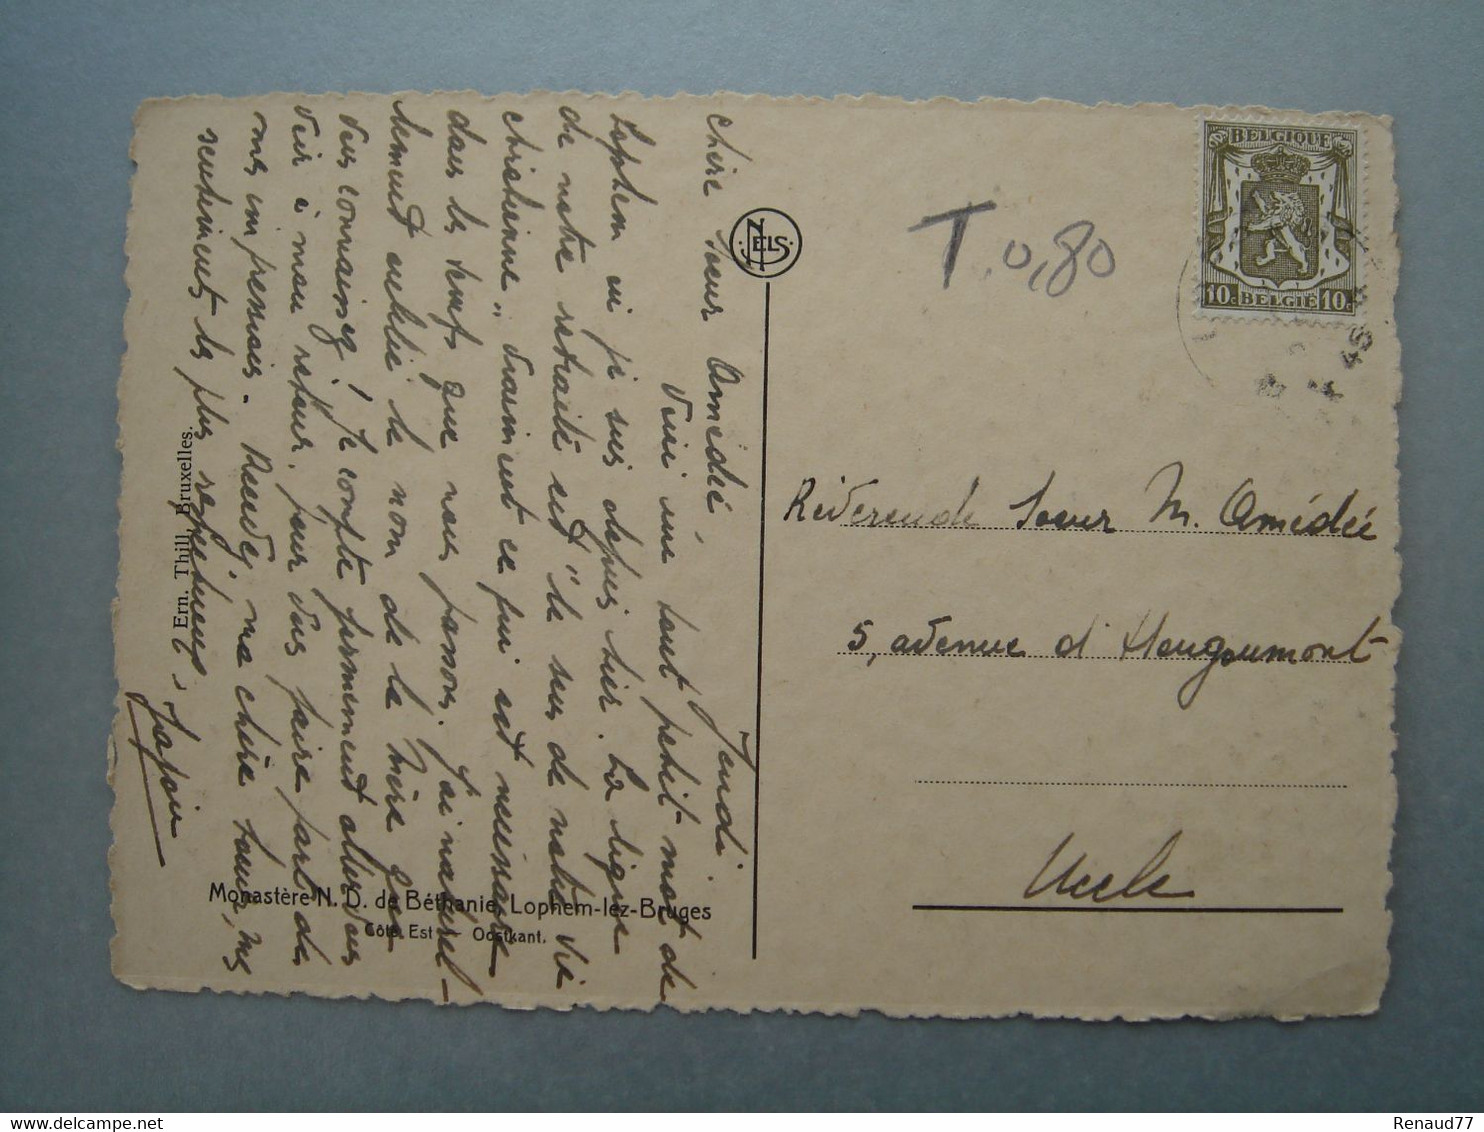 Jeudi
Chère Sœur Amédée,
Voici un tout petit mot de
Lophem où je suis depuis hier. La ligne
de notre retraite est "le sens de notre vie
chrétienne", vraiment ce qui est nécessaire
dans les temps que nous passons. J'ai naturel-
lement oublié le nom de la Mère que
vous connaissez! Je compte fermement aller vous
voir à mon retour, pour vous faire part de
mes impressions. Recevez, ma chère Sœur, mes
sentiments les plus respectueux,
Ern. Thill, Bruxelles.
Monastère N. D. de Béthanie, Lophem-lez-Bruges
Côté Est - Oostkant.
NELS
T. 0,80
BELGIQUE
10c BELGIË 10c
Révérende Soeur M. Amédée
5, avenue d'Hougoumont
Uccle
Renaud77